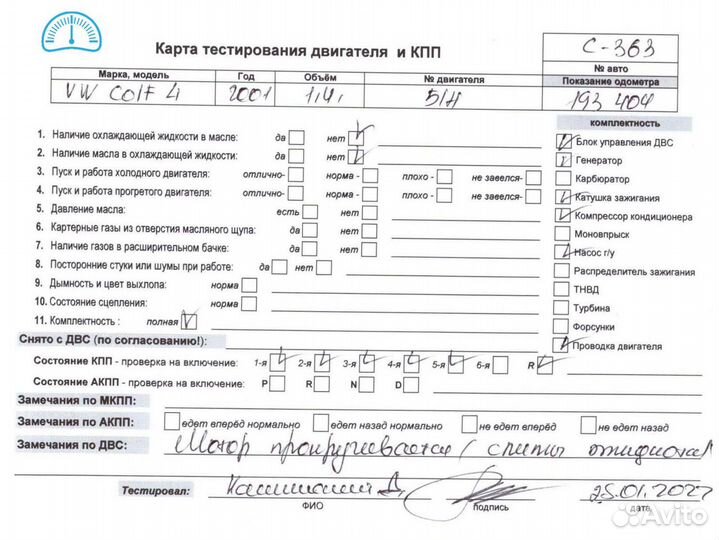 Карта тестирования двигателя и КПП
С-363
№ авто
Марка, модель Год Объём № двигателя Показание одометра
VW GOLF 4 2001 1,4, Б/Н 193 404
комплектность
1. Наличие охлаждающей жидкости в масле: да нет
2. Наличие масла в охлаждающей жидкости: да нет
3. Пуск и работа холодного двигателя: отлично- норма - плохо - не завелся-
4. Пуск и работа прогретого двигателя: отлично- норма - плохо - не завелся-
5. Давление масла: есть нет
6. Картерные газы из отверстия масляного щупа: да нет
7. Наличие газов в расширительном бачке: да нет
8. Посторонние стуки или шумы при работе: да нет
9. Дымность и цвет выхлопа: норма
10. Состояние сцепления: норма
11. Комплектность : полная
Блок управления ДВС
Генератор
Карбюратор
Катушка зажигания
Компрессор кондиционера
Моновпрыск
Насос г/у
Распределитель зажигания
ТНВД
Турбина
Форсунки
Проводка двигателя
Снято с ДВС (по согласованию!):
Состояние КПП - проверка на включение: 1-я 2-я 3-я 4-я 5-я 6-я R
Состояние АКПП - проверка на включение: P R N D
Замечания по МКПП:
Замечания по АКПП: едет вперёд нормально едет назад нормально не едет вперёд не едет назад
Замечания по ДВС: Мотор прокручивается
Тестировал: 25.01.2022
ФИО подпись дата
Avito